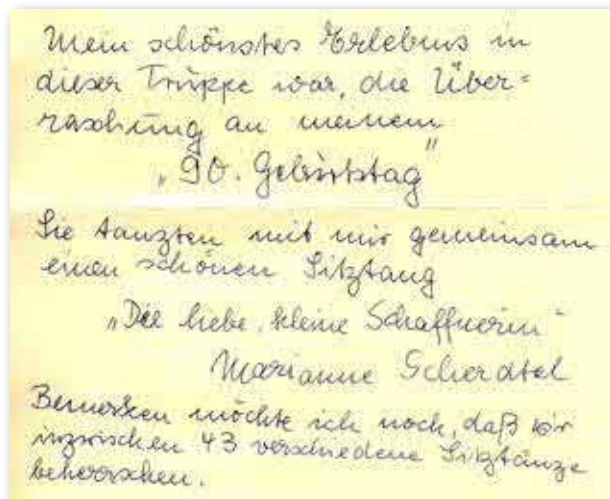 Mein schönstes Erlebnis in
dieser Truppe war, die Über=
raschung an meinem
„90. Geburtstag"
Sie tanzten mit mir gemeinsam
einen schönen Sitztanz
„Die liebe, kleine Schaffnerin"
Marianne
Bemerken möchte ich noch, daß wir
inzwischen 43 verschiedene Sitztänze
beherrschen.